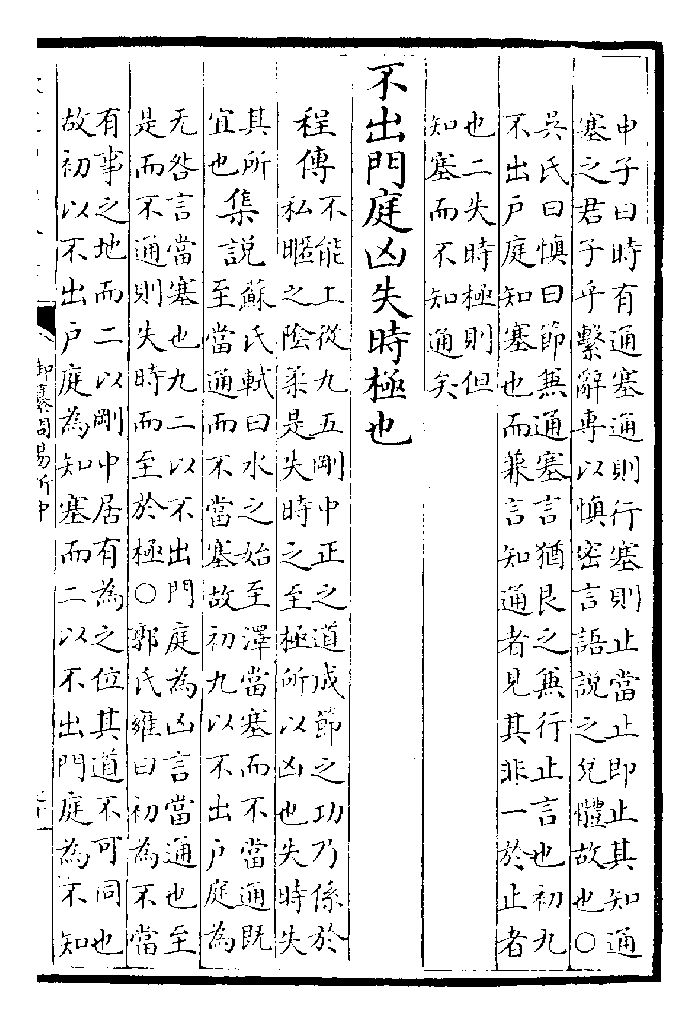 申子曰時有通塞通則行塞則止當止即止其知通
塞之君子乎繫辭專以慎密言語說之兌體故也○
吳氏曰慎曰節兼通塞言猶艮之兼行止言也初九
不出戶庭知塞也而兼言知通者見其非一於止者
也二失時極則但
知塞而不知通矣
不出門庭凶失時極也
程傳
不能上從九五剛中正之道成節之功乃係於
私暱之陰柔是失時之至極所以凶也失時失
其所
宜也
集說
蘇氏軾曰水之始至澤當塞而不當通既
至當通而不當塞故初九以不出戶庭為
无咎言當塞也九二以不出門庭為凶言當通也至
是而不通則失時而至於極○郭氏雍曰初為不當
有事之地而二以剛中居有為之位其道不可同也
故初以不出戶庭為知塞而二以不出門庭為不知
御纂周易折中